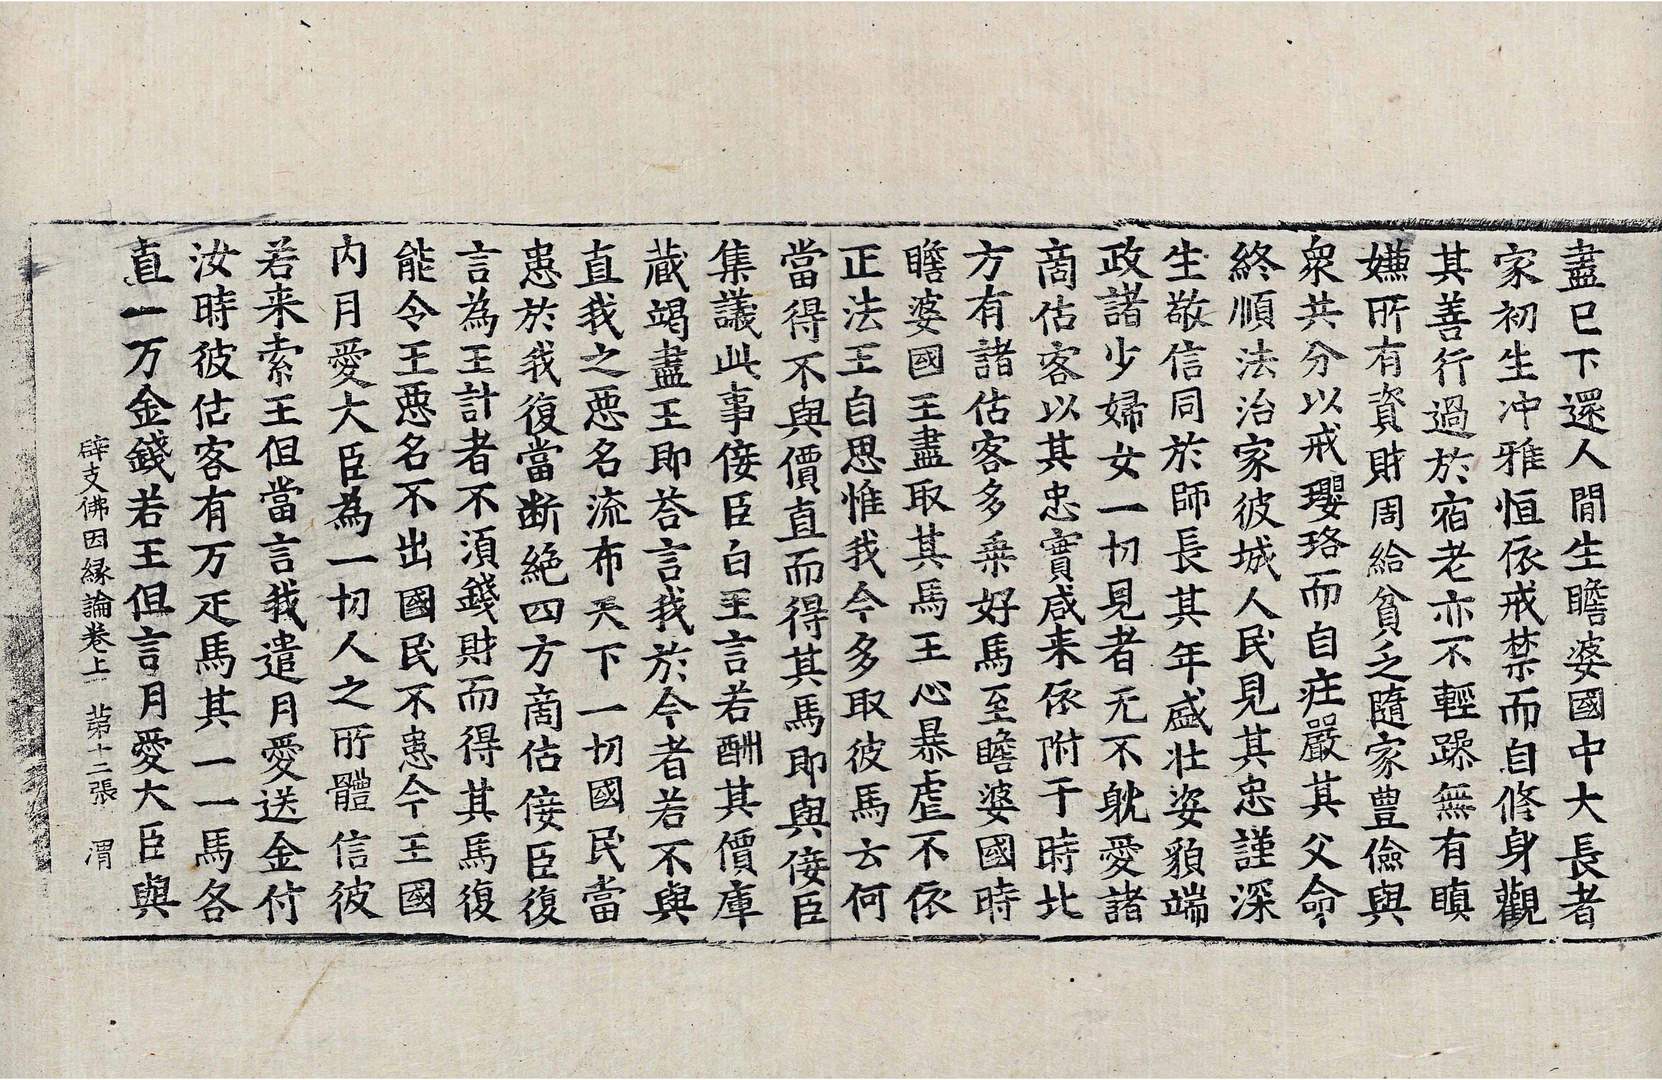 盡已下還人閒生瞻婆國中大長者
家初生冲雅恒依戒禁而自修身觀
其善行過於宿老亦不輕躁無有瞋
嫌所有資財周給貧乏隨家豊儉與
衆共分以戒瓔珞而自莊嚴其父命
終順法治家彼城人民見其忠謹深
生敬信同於師長其年盛壯姿䫉端
政諸少婦女一切見者无不躭愛諸
商估客以其忠實咸来依附于時北
方有諸估客多乗好馬至瞻婆國時
瞻婆國王盡取其馬王心暴虐不依
正法王自思惟我今多取彼馬云何
當得不與價直而得其馬即與倿臣
集議此事倿臣白王言若酬其價庫
藏竭盡王即荅言我於今者若不與
直我之惡名流布天下一切國民當
恚於我復當断絶四方商估倿臣復
言為王計者不湏錢財而得其馬復
能令王惡名不出國民不恚今王國
内月愛大臣為一切人之所體信彼
若来索王但當言我遣月愛送金付
汝時彼估客有万疋馬其一一馬各
直一万金錢若王但言月愛大臣與
辟支佛因縁論卷上 苐十二張 渭